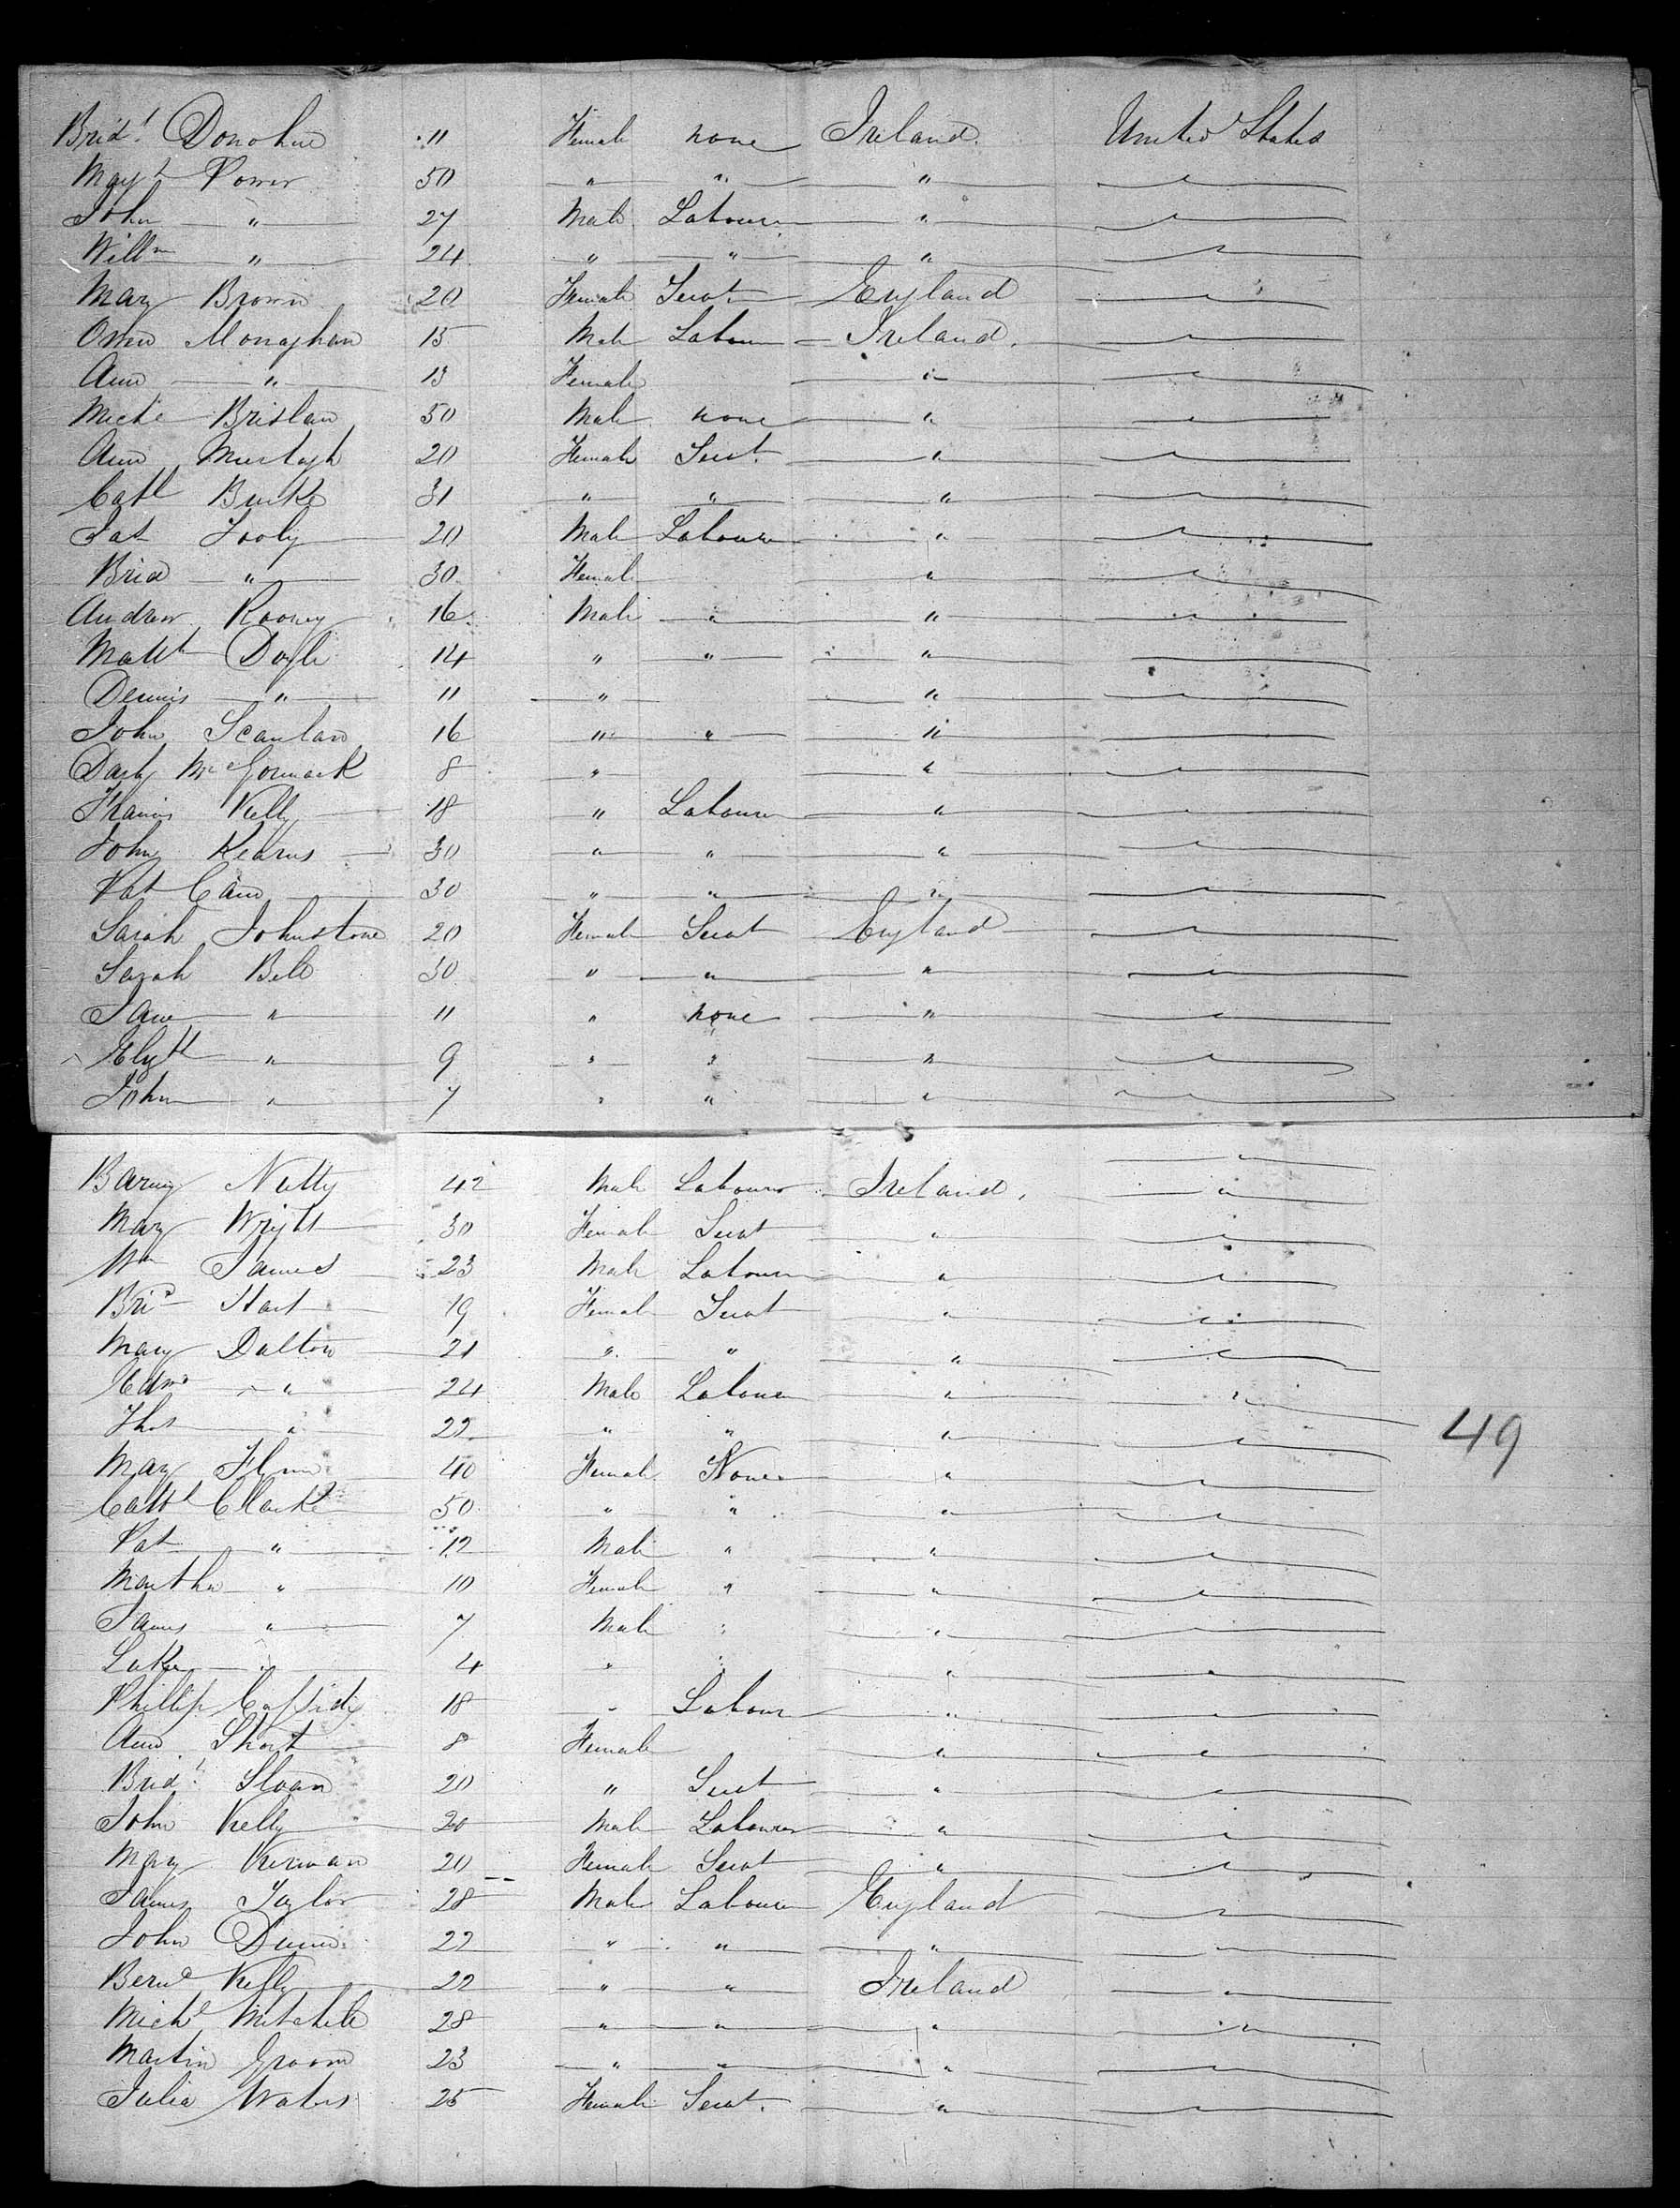 Brid.t Donohue 11 Female none Ireland. United States
Mayt Power 50 " " " "
John " 27 Male Labourer " "
Willm " 24 " " " "
Mary Brown 20 Female Servt England "
Owen Monaghan 15 Male Labour Ireland. "
Ann " 13 Female " "
Michl Brislan 50 Male none " "
Ann Murtagh 20 Female Servt. " "
Cathl Burke 31 " " " "
Pat Fooly 20 Male Labourer " "
Brid " 30 Female " "
Andrew Rooney 16 Male " " "
Matth Doyle 14 " " "
Dennis " 11 " " "
John Scanlan 16 " " " "
Darby McCormack 8 " " "
Francis Kelly 18 " Labourer " "
John Kearns 30 " " " "
Pat Cain 30 " " " "
Sarah Johnstone 20 Female Servt England "
Sarah Bell 30 " " " "
Jane " 11 " none " "
Elizth " 9 " " " "
John " 7 " " " "
Barney Natty 42 Male Labourer Ireland. "
Mary Wright 30 Female Servt " "
Wm James 23 Male Labourer " "
Brid Hart 19 Female Servt " "
Mary Dalton 21 " " " "
Edwd " 24 Male Labourer " "
Thos " 22 " " " "
49
Mary Flynn 40 Female None " "
Cathl Clarke 50 " " " "
Pat " 12 Male " " "
Martha " 10 Female " " "
James " 7 Male " " "
Luke " 4 " " " "
Phillip Cassidy 18 " Labour " "
Ann Short 8 Female " "
Brid.t Sloan 20 " Servt " "
John Kelly 20 Male Labourer " "
Mary Kirwan 20 Female Servt " "
James Taylor 28 Male Labourer England "
John Dunn 22 " " " "
Bernd Kelly 22 " " Ireland "
Michl Mitchell 28 " " " "
Martin Groom 23 " " " "
Julia Waters 25 Female Servt. " "